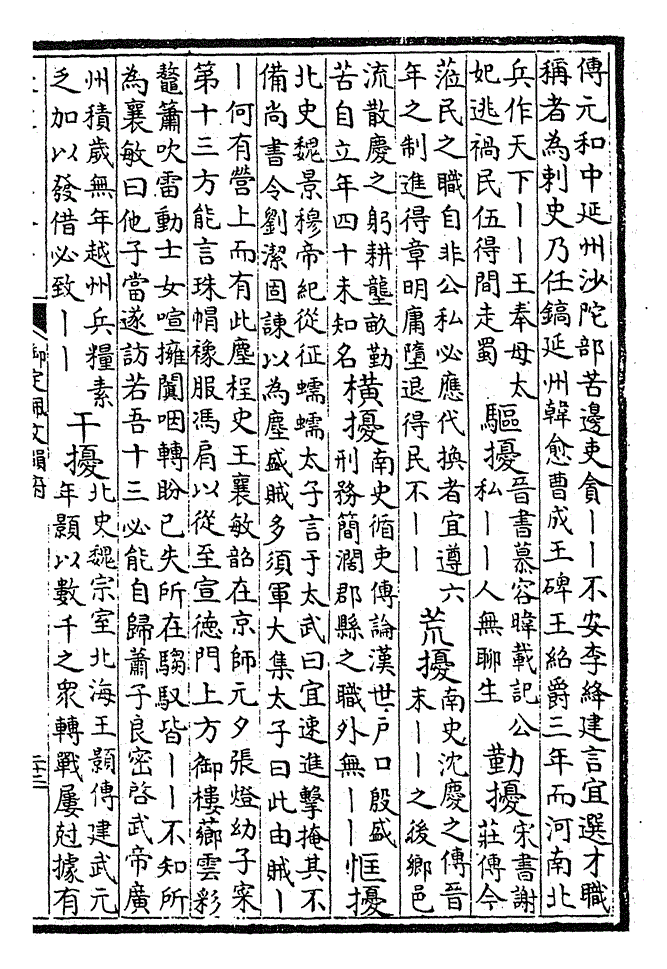 傳元和中延州沙陀部苦邊吏貪丨丨不安李絳建言宜選才職
稱者為刺史乃任鎬延州韓愈曹成王碑王紹爵三年而河南北
兵作天下丨丨王奉母太
妃逃禍民伍得間走蜀
驅擾
晉書慕容暐載記公
私丨丨人無聊生
勤擾
宋書謝
莊傳今
蒞民之職自非公私必應代換者宜遵六
年之制進得章明庸墮退得民不丨丨
荒擾
南史沈慶之傳晉
末丨丨之後鄉邑
流散慶之躬耕壟畝勤
苦自立年四十未知名
橫擾
南史循吏傳論漢世户口殷盛
刑務簡濶郡縣之職外無丨丨
恇擾
北史魏景穆帝紀從征蠕蠕太子言于太武曰宜速進擊掩其不
備尚書令劉潔固諫以為塵盛賊多須軍大集太子曰此由賊丨
丨何有營上而有此塵程史王襄敏韶在京師元夕張燈幼子寀
第十三方能言珠帽襐服馮肩以從至宣德門上方御樓薌雲彩
鼇簫吹雷動士女喧擁闐咽轉盼已失所在騶馭皆丨丨不知所
為襄敏曰他子當遂訪若吾十三必能自歸蕭子良密啓武帝廣
州積歲無年越州兵糧素
乏加以發借必致丨丨
干擾
北史魏宗室北海王顥傳建武元
年顥以數千之衆轉戰屢尅據有
御定佩文韻府